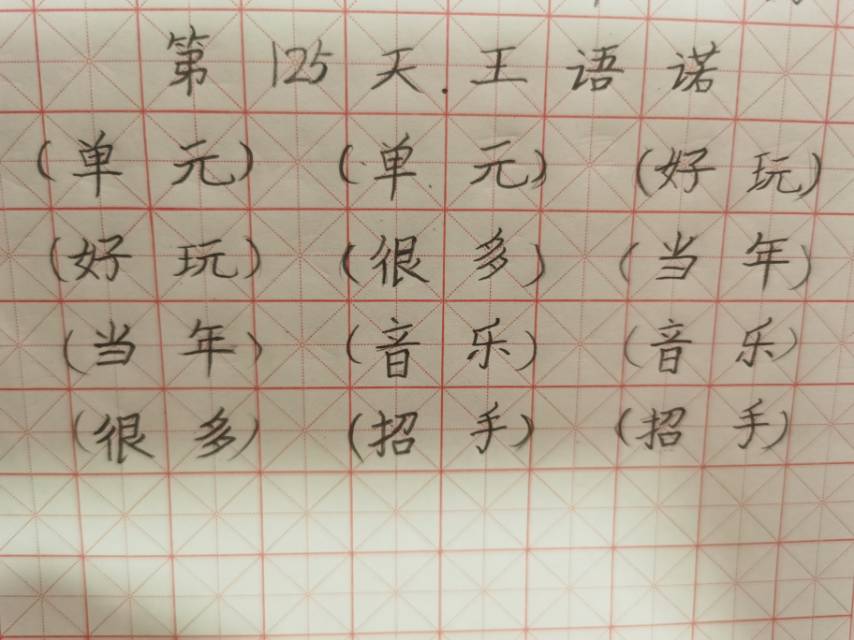 第125天.王语诺
(单元) (单元) (好玩)
(好玩) (很多) (当年)
(当年) (音乐) (音乐)
(很多) (招手) (招手)